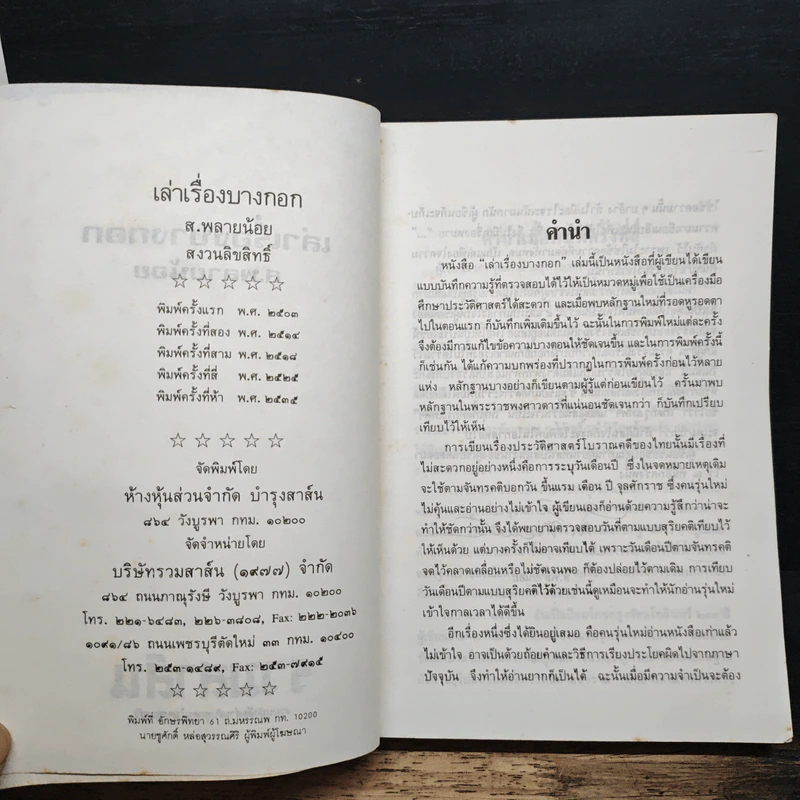 เล่าเรื่องบางกอก
ส.พลายน้อย
สงวนลิขสิทธิ์
☆ ☆ ☆ ☆ ☆
พิมพ์ครั้งแรก พ.ศ. ๒๕๐๓
พิมพ์ครั้งที่สอง พ.ศ. ๒๕๑๔
พิมพ์ครั้งที่สาม พ.ศ. ๒๕๑๘
พิมพ์ครั้งที่สี่ พ.ศ. ๒๕๒๕
พิมพ์ครั้งที่ห้า พ.ศ. ๒๕๓๕
☆ ☆ ☆ ☆ ☆
จัดพิมพ์โดย
ห้างหุ้นส่วนจำกัด บำรุงสาส์น
๘๖๔ วังบูรพา กทม. ๑๐๒๐๐
จัดจำหน่ายโดย
บริษัทรวมสาส์น (๑๙๗๗) จำกัด
๘๖๔ ถนนภาณุรังษี วังบูรพา กทม. ๑๐๒๐๐
โทร. ๒๒๑-๖๔๘๓, ๒๒๖-๓๘๐๘, Fax: ๒๒๒-๒๐๓๖
๑๐๙๑/๘๖ ถนนเพชรบุรีตัดใหม่ ๓๓ กทม. ๑๐๔๐๐
โทร. ๒๕๓-๑๔๘๙, Fax: ๒๕๓-๗๙๑๕
☆ ☆ ☆ ☆ ☆
พิมพ์ที่ อักษรพิทยา 61 ถ.มหรรณพ กท. 10200
นายชูศักดิ์ หล่อสุวรรณศิริ ผู้พิมพ์ผู้โฆษณา
คำนำ
หนังสือ “เล่าเรื่องบางกอก” เล่มนี้เป็นหนังสือที่ผู้เขียนได้เขียน
แบบบันทึกความรู้ที่ตรวจสอบได้ไว้ให้เป็นหมวดหมู่เพื่อใช้เป็นเครื่องมือ
ศึกษาประวัติศาสตร์ได้สะดวก และเมื่อพบหลักฐานใหม่ที่รอดหูรอดตา
ไปในตอนแรก ก็บันทึกเพิ่มเติมขึ้นไว้ ฉะนั้นในการพิมพ์ใหม่แต่ละครั้ง
จึงต้องมีการแก้ไขข้อความบางตอนให้ชัดเจนขึ้น และในการพิมพ์ครั้งนี้
ก็เช่นกัน ได้แก้ความบกพร่องที่ปรากฏในการพิมพ์ครั้งก่อนไว้หลาย
แห่ง หลักฐานบางอย่างก็เขียนตามผู้รู้แต่ก่อนเขียนไว้ ครั้นมาพบ
หลักฐานในพระราชพงศาวดารที่แน่นอนชัดเจนกว่า ก็บันทึกเปรียบ
เทียบไว้ให้เห็น
การเขียนเรื่องประวัติศาสตร์โบราณคดีของไทยนั้นมีเรื่องที่
ไม่สะดวกอยู่อย่างหนึ่งคือการระบุวันเดือนปี ซึ่งในจดหมายเหตุเดิม
จะใช้ตามจันทรคติบอกวัน ขึ้นแรม เดือน ปี จุลศักราช ซึ่งคนรุ่นใหม่
ไม่คุ้นและอ่านอย่างไม่เข้าใจ ผู้เขียนเองก็อ่านด้วยความรู้สึกว่าน่าจะ
ทำให้ชัดกว่านั้น จึงได้พยายามตรวจสอบวันที่ตามแบบสุริยคติเทียบไว้
ให้เห็นด้วย แต่บางครั้งก็ไม่อาจเทียบได้ เพราะวันเดือนปีตามจันทรคติ
จดไว้คลาดเคลื่อนหรือไม่ชัดเจนพอ ก็ต้องปล่อยไว้ตามเดิม การเทียบ
วันเดือนปีตามแบบสุริยคติไว้ด้วยเช่นนี้ดูเหมือนจะทำให้นักอ่านรุ่นใหม่
เข้าใจกาลเวลาได้ดีขึ้น
อีกเรื่องหนึ่งซึ่งได้ยินอยู่เสมอ คือคนรุ่นใหม่อ่านหนังสือเก่าแล้ว
ไม่เข้าใจ อาจเป็นด้วยถ้อยคำและวิธีการเรียงประโยคผิดไปจากภาษา
ปัจจุบัน จึงทำให้อ่านยากก็เป็นได้ ฉะนั้นเมื่อมีความจำเป็นจะต้อง